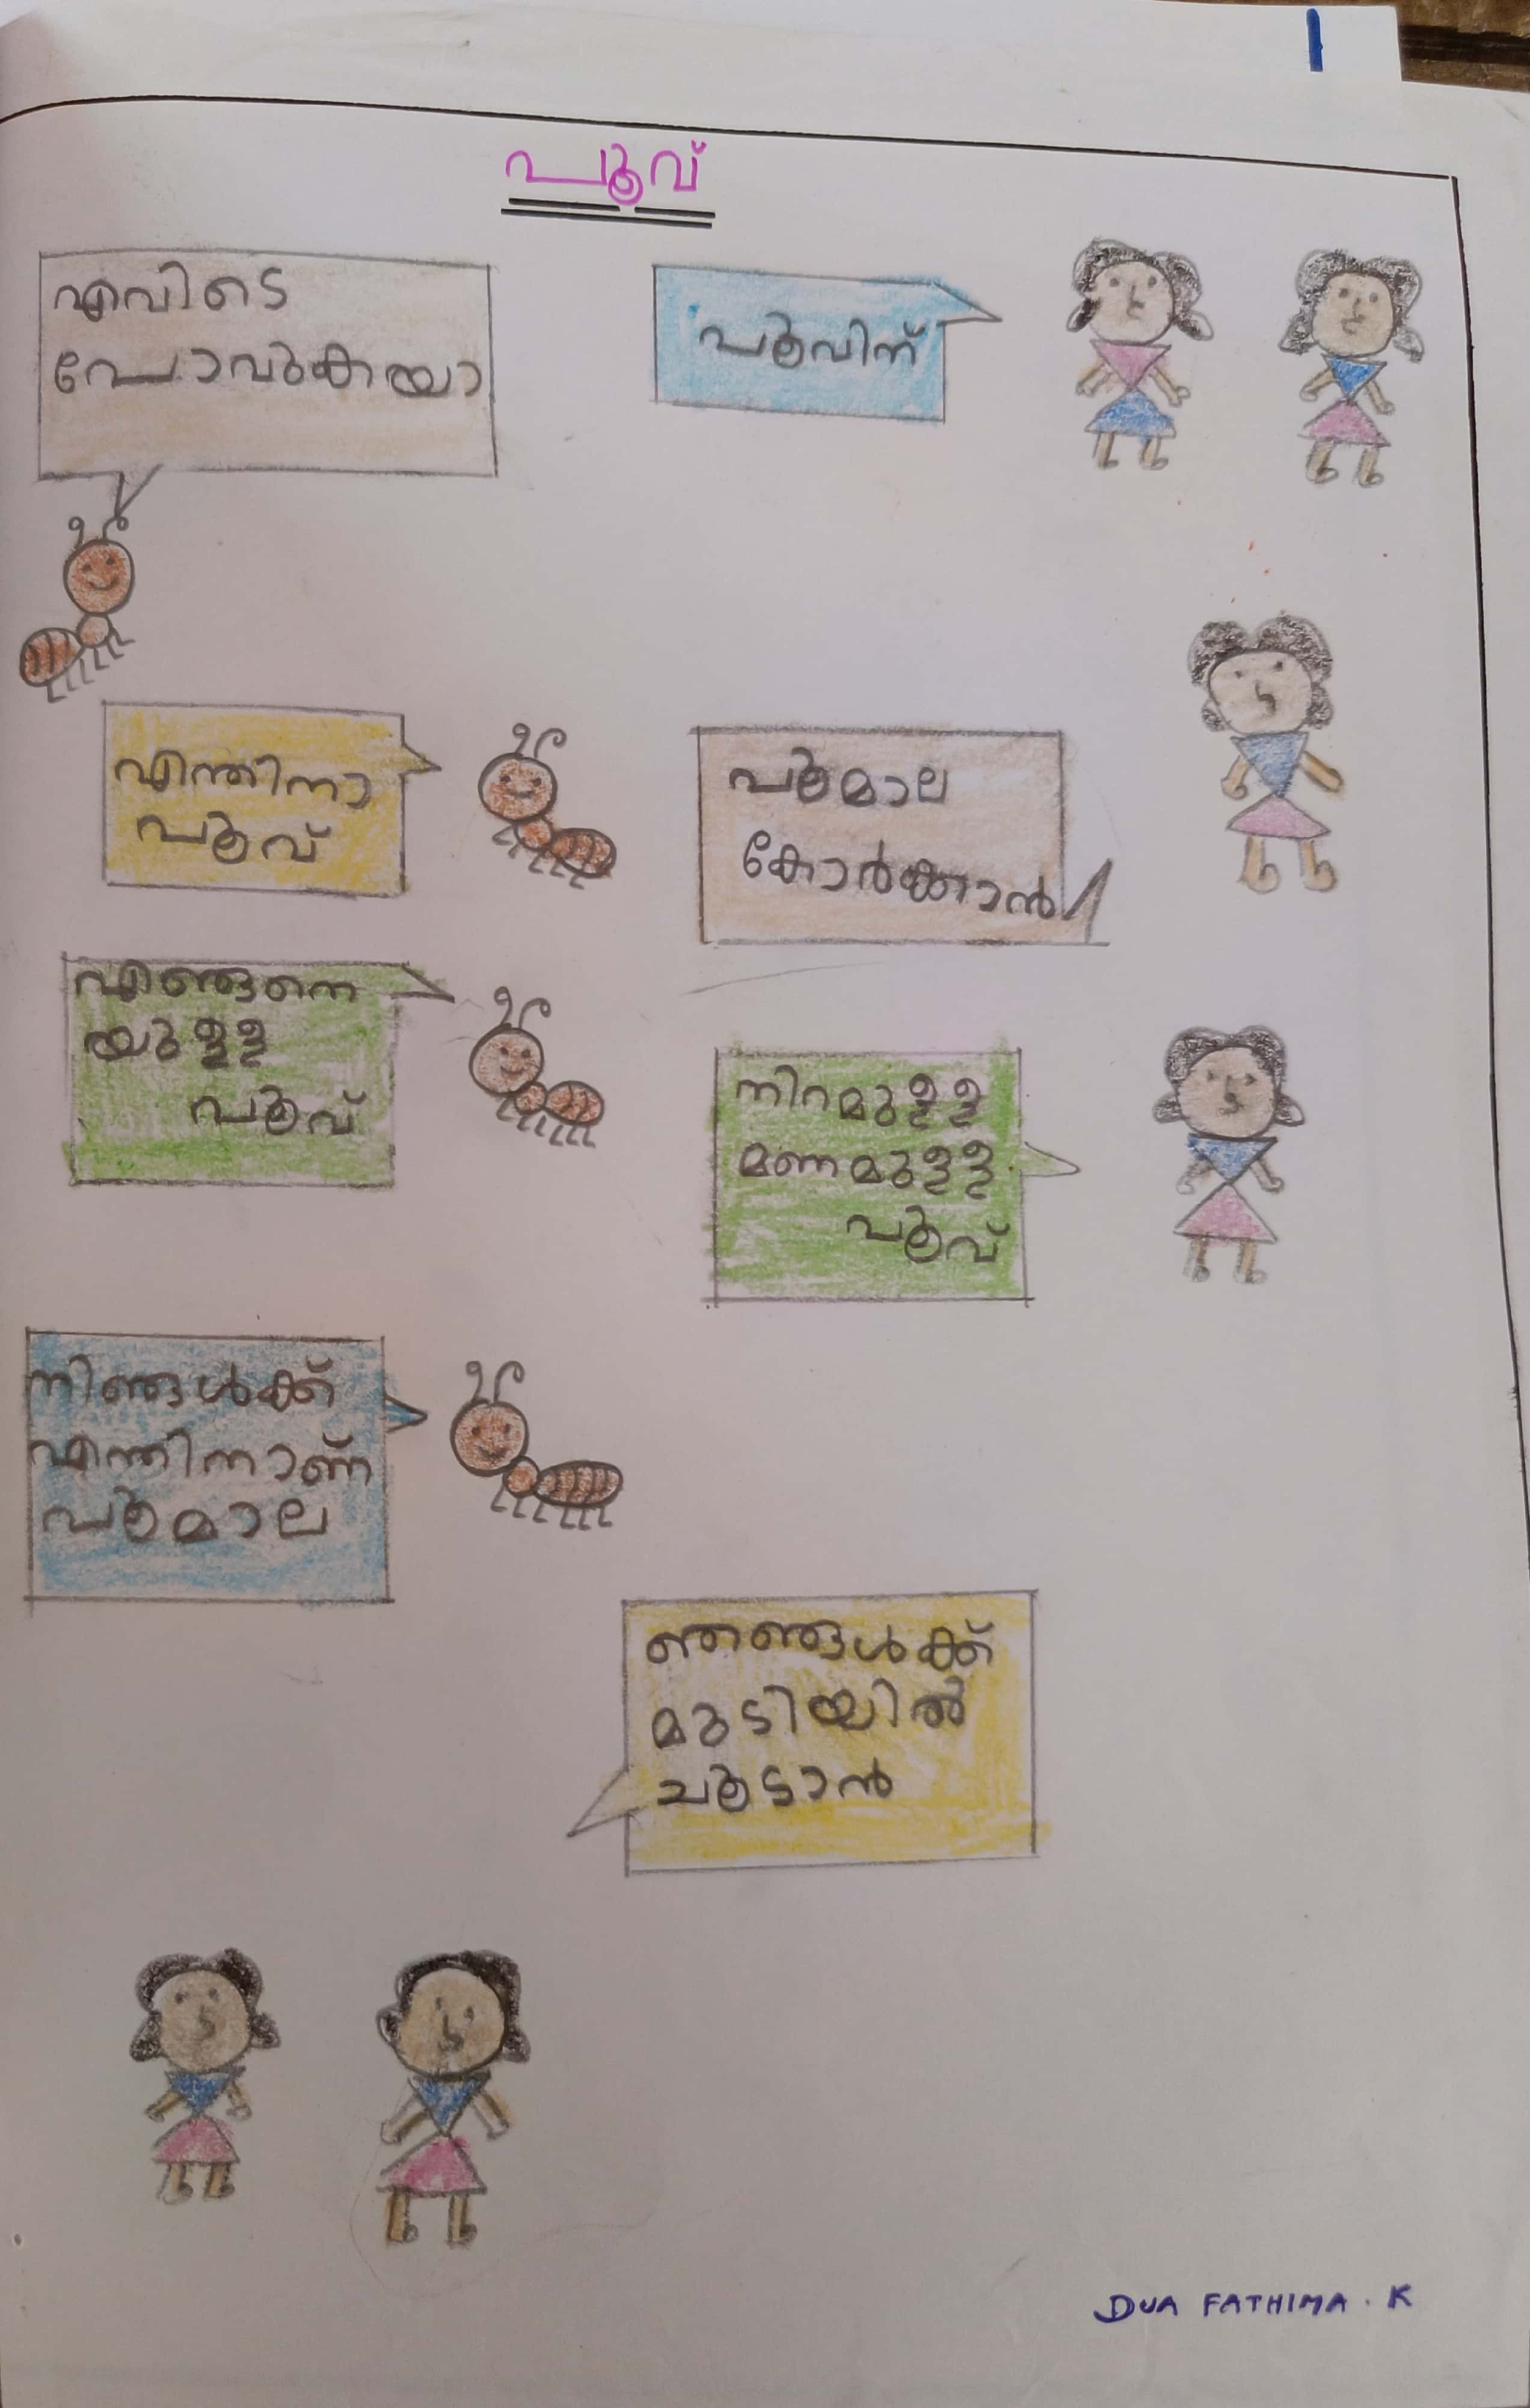 പൂവ്
എവിടെ
പോവുകയാ
പൂവിന്
എന്തിനാ
പൂവ്
പൂമാല
കോർക്കാൻ
എങ്ങനെ
യുള്ള
പൂവ്
നിറമുള്ള
മണമുള്ള
പൂവ്
നിങ്ങൾക്ക്
എന്തിനാണ്
പൂമാല
ഞങ്ങൾക്ക്
മുടിയിൽ
ചൂടാൻ
DUA FATHIMA. K